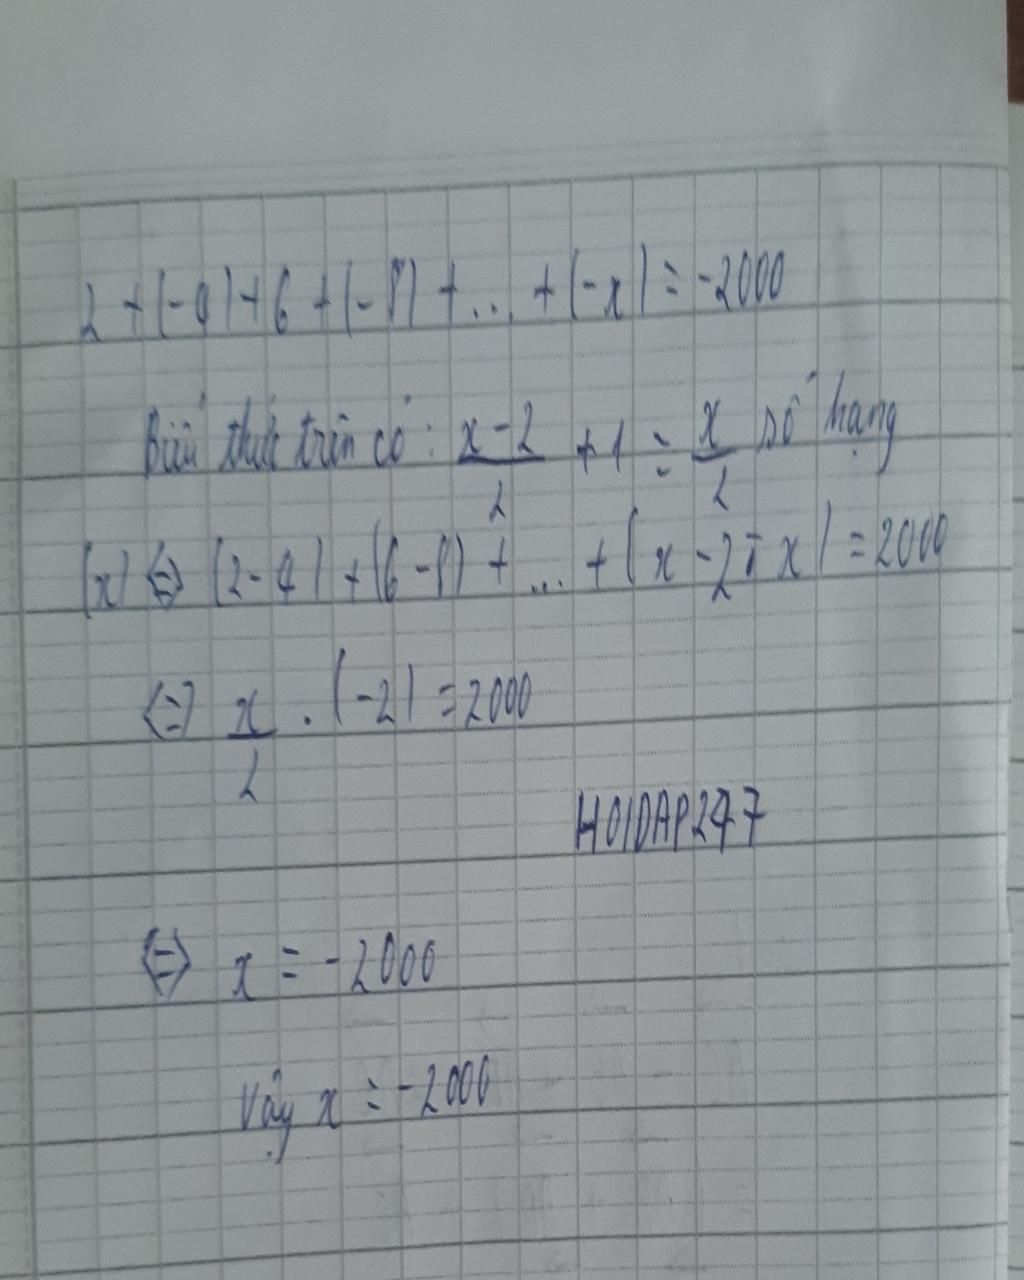 2 + (-4) + 6 + (-8) + ... + (-x) = -2000
Biểu thức trên có : x-2/2 + 1 = x/2 số hạng
(x) <=> (2-4) + (6-8) + ... + (x-2-x) = 2000
<=> x/2 . (-2) = 2000
HOIDAP247
<=> x = -2000
Vậy x = -2000